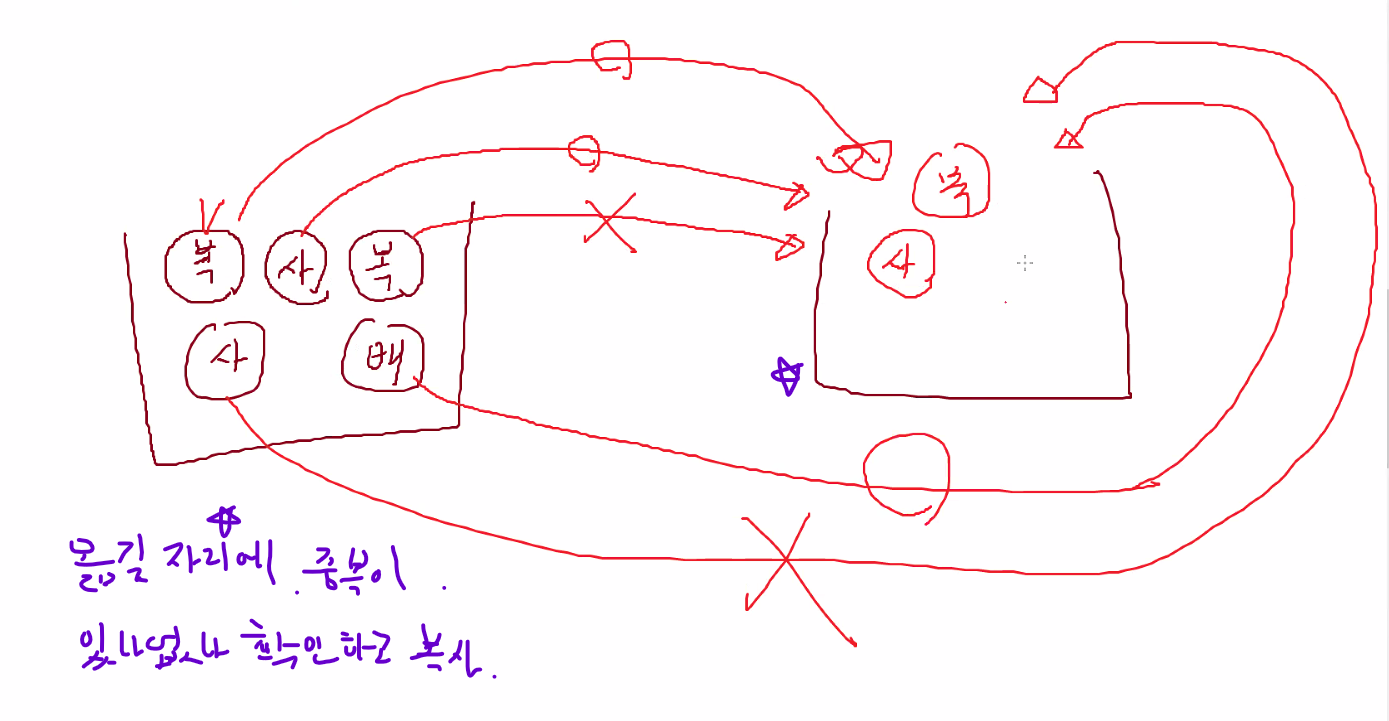 복
복 사 복
사
사 배
옮길 자리에 중복이
있나없나 확인하고 복사.